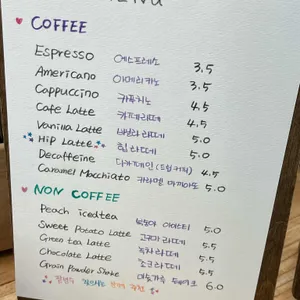 Menu
COFFEE
Espresso 에스프레소 3.5
Americano 아메리카노 3.5
Cappuccino 카푸치노 4.5
Cafe Latte 카페라떼 4.5
Vanilla Latte 바닐라라떼 5.0
Hip Latte 힙라떼 5.0
Decaffeine 디카페인(드립커피) 4.5
Caramel Macchiato 카라멜 마끼아또 5.0
NON COFFEE
Peach icedtea 복숭아 아이스티 5.0
Sweet Potato Latte 고구마라떼 5.5
Green tea Latte 녹차라떼 5.5
Chocolate Latte 초코라떼 5.5
Grain Powder Shake 미숫가루 쉐이크 6.0